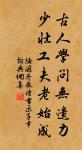 古人學問無遺力
少壯工夫老始成
陸游冬夜讀書示子聿
詞典網集